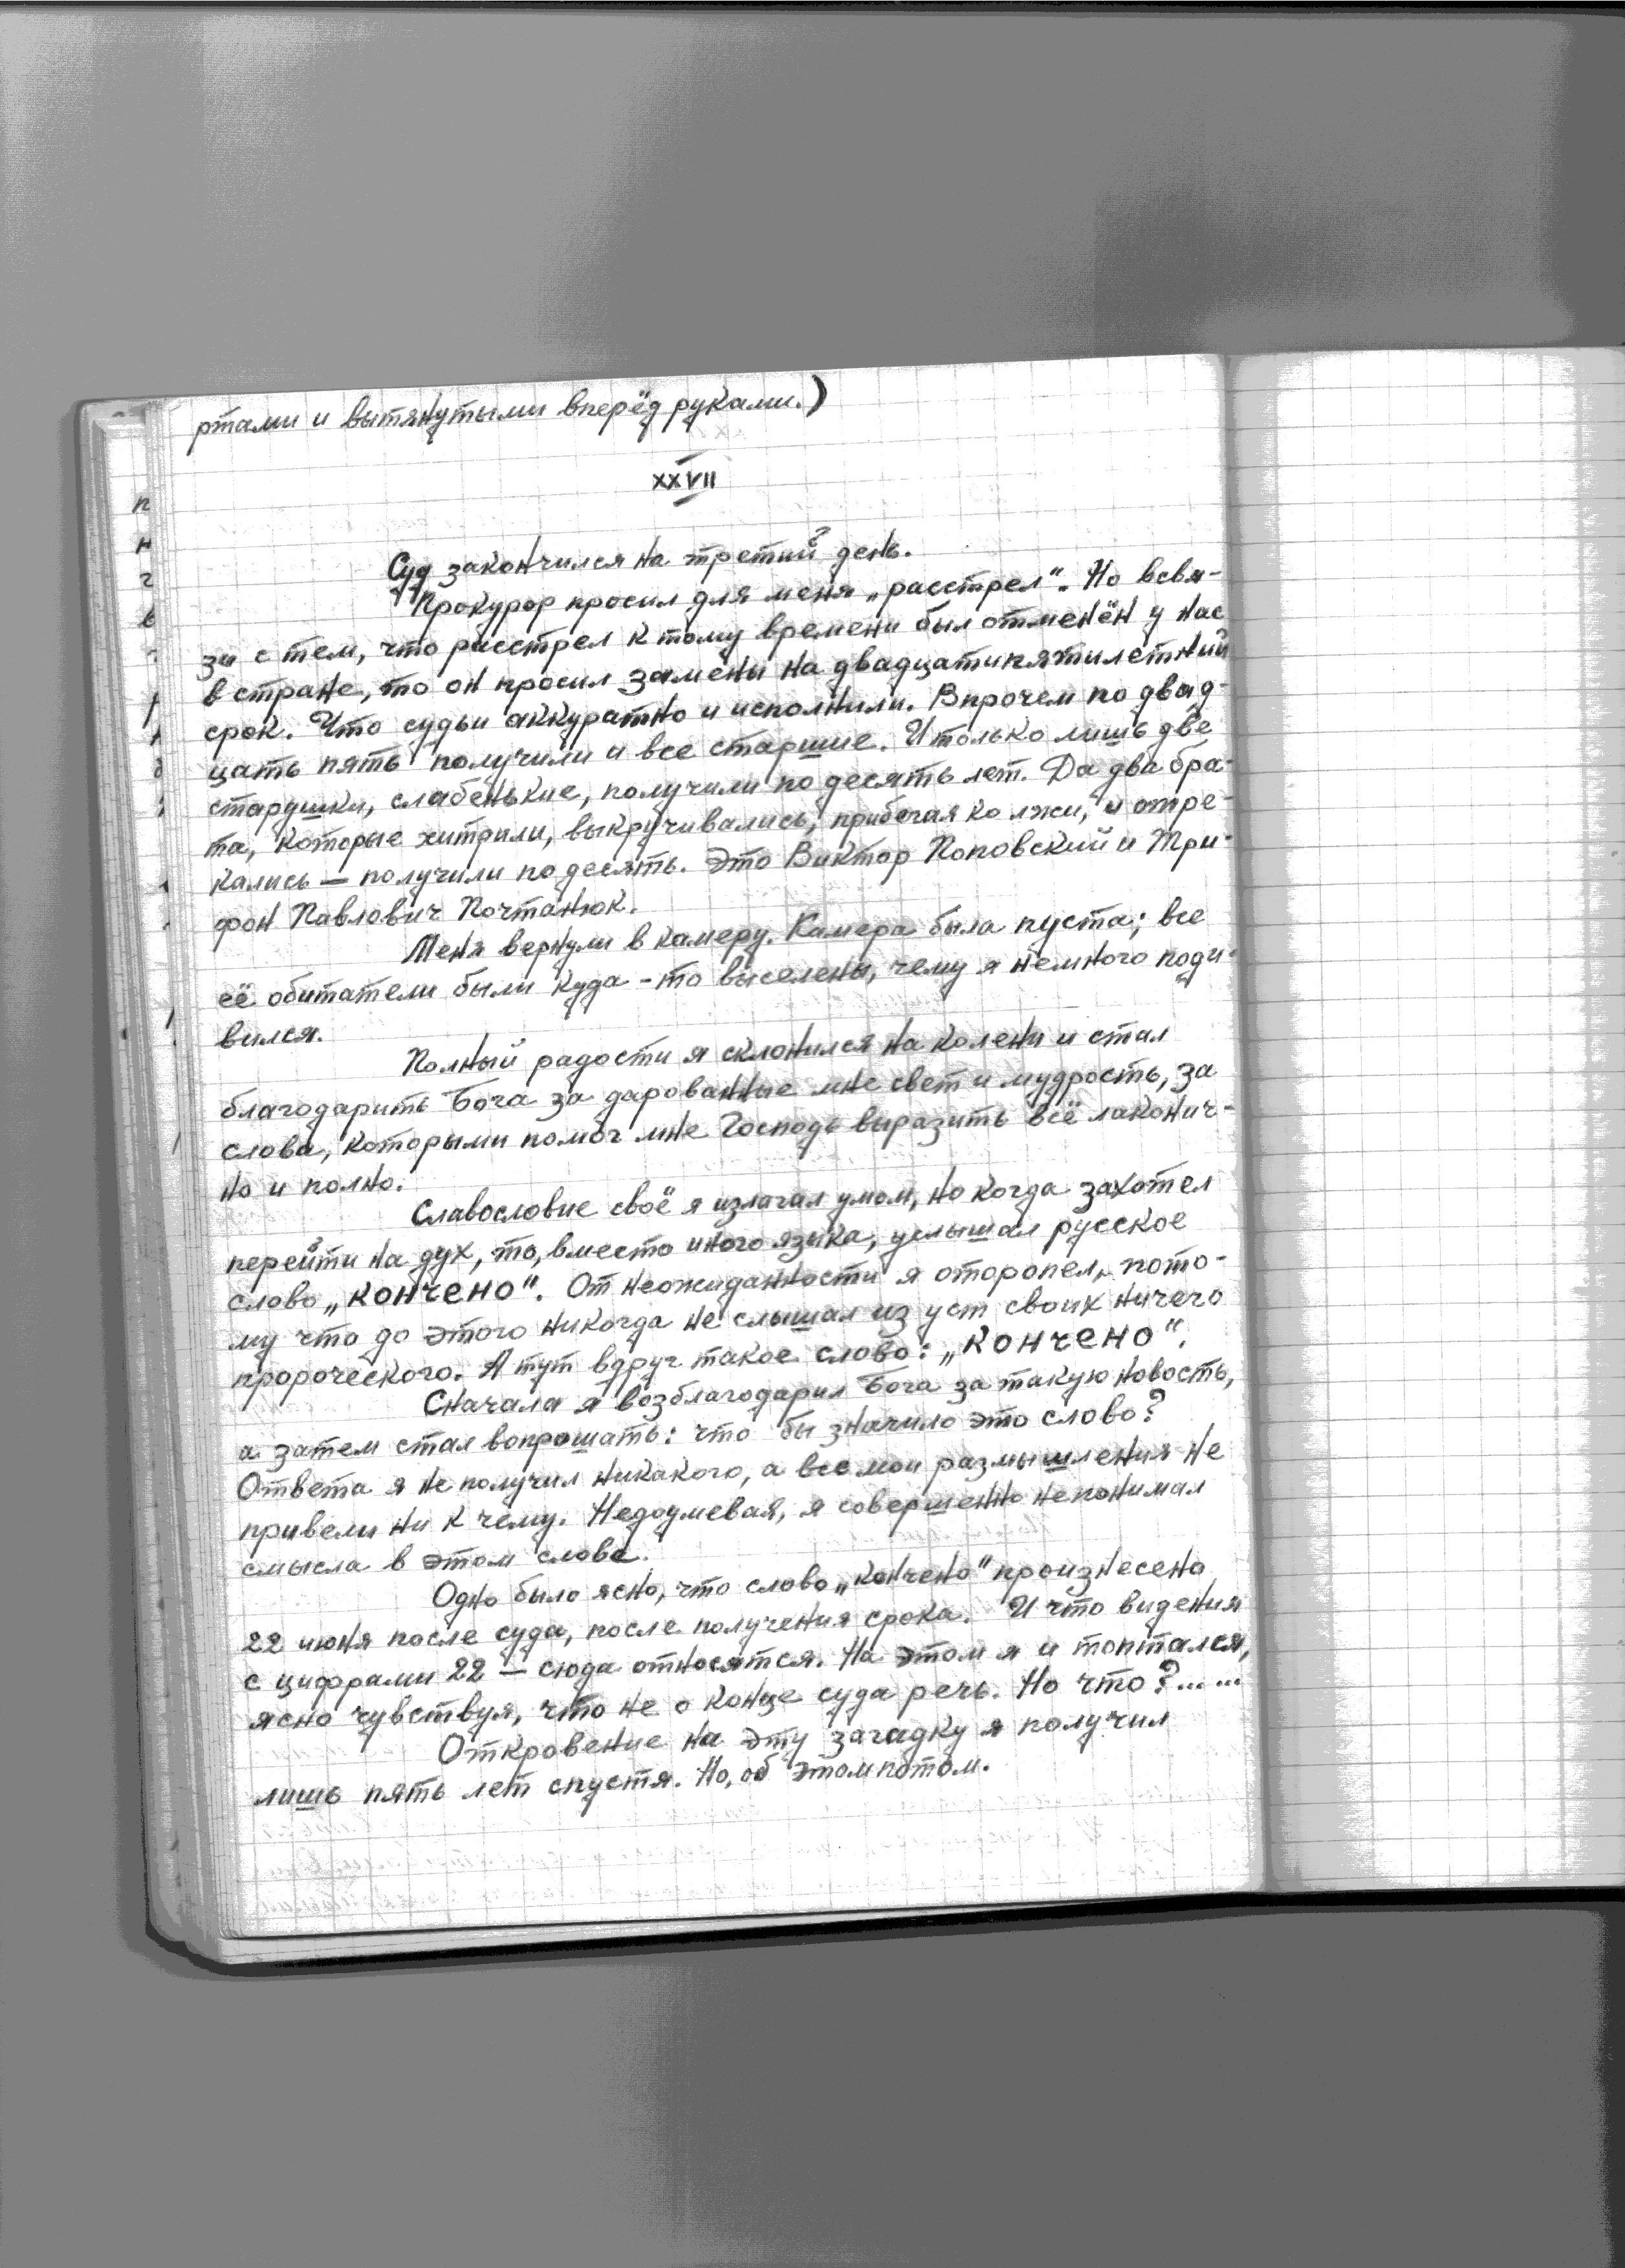 ртами и вытянутыми вперёд руками.)
XXVII
Суд закончился на третий день.
Прокурор просил для меня „расстрел“. Но всвя-
зи с тем, что расстрел к тому времени был отменён у нас
в стране, то он просил замены на двадцатипятилетний
срок. Что судьи аккуратно и исполнили. Впрочем по двад-
цать пять получили и все старшие. И только лишь две
старушки, слабенькие, получили по десять лет. Да два бра-
та, которые хитрили, выкручивались, прибегая ко лжи, и отре-
кались — получили по десять. Это Виктор Поповский и Три-
фон Павлович Почтанюк.
Меня вернули в камеру. Камера была пуста; все
её обитатели были куда-то выселены, чему я немного поди-
вился.
Полный радости я склонился на колени и стал
благодарить Бога за дарованные мне свет и мудрость, за
слова, которыми помог мне Господь выразить всё лаконич-
но и полно.
Славословие своё я излагал умом, но когда захотел
перейти на дух, то, вместо иного языка, услышал русское
слово „кончено“. От неожиданности я оторопел, пото-
му что до этого никогда не слышал из уст своих ничего
пророческого. А тут вдруг такое слово: „кончено“.
Сначала я возблагодарил Бога за такую новость,
а затем стал вопрошать: что бы значило это слово?
Ответа я не получил никакого, а все мои размышления не
привели ни к чему. Недоумевая, я совершенно непонимал
смысла в этом слове.
Одно было ясно, что слово „кончено“ произнесено
22 июня после суда, после получения срока. И что видения
с цифрами 22 — сюда относятся. На этом я и топтался,
ясно чувствуя, что не о конце суда речь. Но что?.....
Откровение на эту загадку я получил
лишь пять лет спустя. Но, об этом потом.